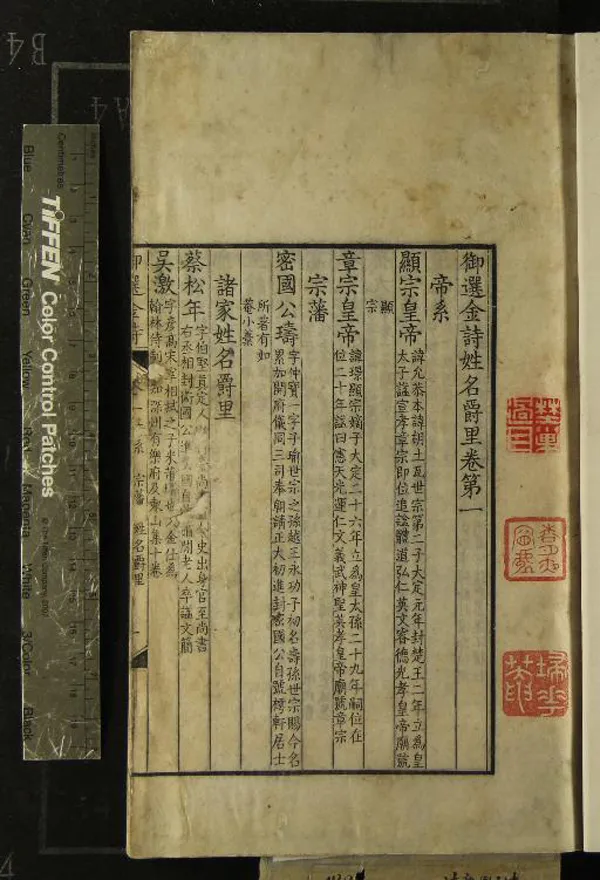 御選金詩姓名爵里卷第一
帝系
顯宗皇帝
諱允恭本諱胡土瓦世宗第二子大定元年封楚王二年立爲皇
太子諡宣孝章宗即位追諡體道弘仁英文睿德光孝皇帝廟號
顯
宗
章宗皇帝
諱璟顯宗嫡子大定二十六年立爲皇太孫二十九年嗣位在
位二十年諡曰憲天光運仁文義武神聖英孝皇帝廟號章宗
宗藩
密國公璹
字仲寶一字子瑜世宗之孫越王永功子初名壽孫世宗賜今名
累加開府儀同三司奉朝請正大初進封密國公自號樗軒居士
所著有如
菴小藁
諸家姓名爵里
蔡松年
字伯堅真定人史出身官至尚書
右丞相封衛國公閒老人卒諡文簡
吳激
字彥高宋宰相栻之子米芾壻也入金仕爲
翰林待制知深州有樂府及東山集十卷
御選金詩
宗藩 姓名爵里
Centimetres
TIFFEN Color Control Patches
Blue Cyan Green Yellow Red Magenta White 3/Color Black
B4
A4